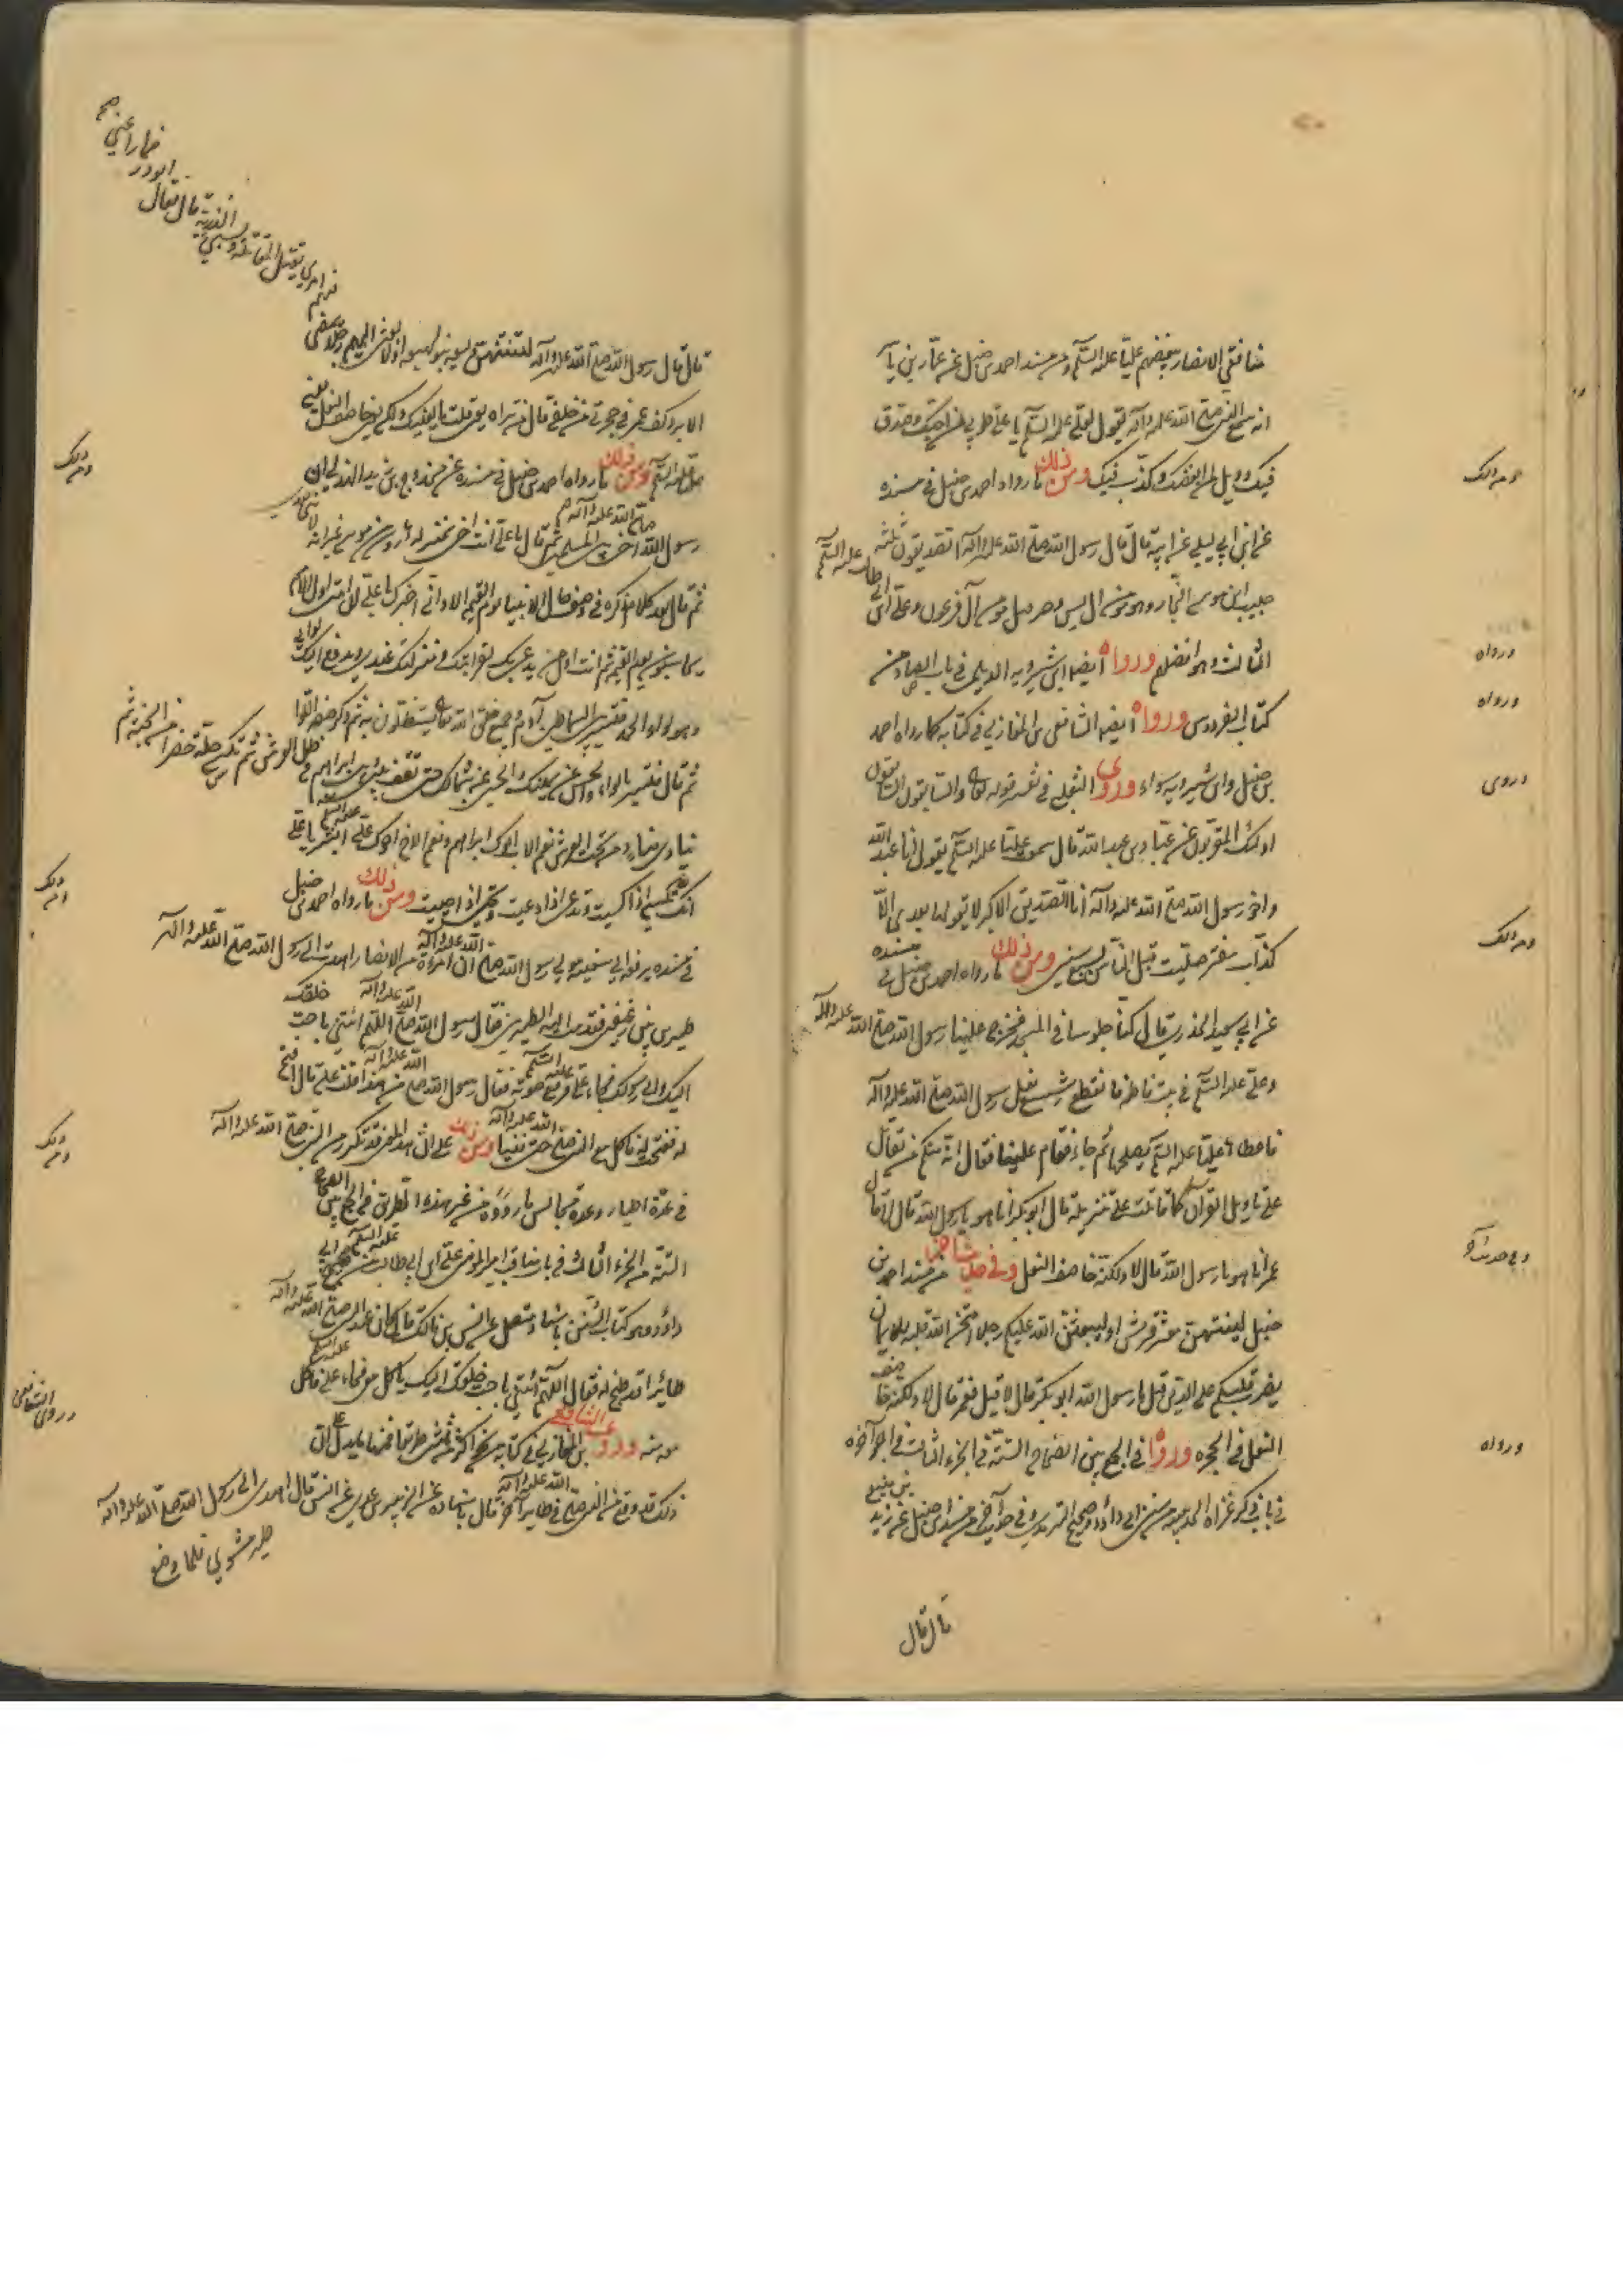 منافقي الانصار ببغضهم عليّا عليه السّلم ومن مسند احمد بن حنبل عن عمّار بن يا
انه سمع النبي صلّى اللّه عليه وآله يقول لعلي عليه السّلم يا علي طوبى لمن احبّك وصدق
فيك وويل لمن ابغضك وكذّب فيك ومن ذلك ما رواه احمد بن حنبل في مسنده
عن ابن ابي ليلى عن ابيه قال قال رسول اللّه صلّى اللّه عليه وآله الصديقون ثلثة
حبيب ابن موسى النجّار وهو مؤمن آل يس وحزقيل مؤمن آل فرعون وعلي بن ابي طالب عليه السّلم
الثالث وهو افضلهم ورواه ايضا ابن شيرويه الديلمي في باب الصاد من
كتاب الفردوس ورواه ايضا الشافعي بن المغازلي في كتابه كما رواه احمد
بن حنبل وابن شيرويه سواء وروى الثعلبي في تفسير قوله تعالى والسّابقون السّابقون
اولئك المقرّبون عن عبّاد بن عبد اللّه قال سمعت عليّا عليه السّلم يقول انا عبد اللّه
واخو رسول اللّه صلّى اللّه عليه وآله انا الصّديق الاكبر لا يقولها بعدي الّا
كذّاب مفتر صلّيت قبل النّاس بسبع سنين ومن ذلك ما رواه احمد بن حنبل في مسنده
عن ابي سعيد الخدري قال كنّا جلوسا في المسجد فخرج علينا رسول اللّه صلّى اللّه عليه وآله
وعلي عليه السّلم في بيت فاطمة فانقطع شسع نعل رسول اللّه صلّى اللّه عليه وآله
فاعطاها عليّا عليه السّلم يصلحها ثم جاء فقام علينا فقال انّ منكم من يقاتل
على تاويل القرآن كما قاتلت على تنزيله قال ابو بكر انا هو يا رسول اللّه قال لا قال
عمر انا هو يا رسول اللّه قال لا ولكنه خاصف النعل وفي حديث آخر من مسند احمد بن
حنبل لينتهينّ معشر قريش او ليبعثنّ اللّه عليكم رجلا امتحن اللّه قلبه بالايمان
يضرب رقابكم على الدين قيل يا رسول اللّه ابو بكر قال لا قيل فعمر قال لا ولكنه خاصف
النعل في الحجرة ورواه في الجمع بين الصّحاح السّتّة في الجزء الثالث في آخره
في باب ذكر غزاة الحديبية من سنن ابي داود وصحيح الترمذي وفي رواية اخرى من مسند احمد بن حنبل عن زيد بن يثيع
قال قال
ومن ذلك
ورواه
ورواه
وروى
ومن ذلك
وفي حديث آخر
ورواه
قال قال رسول اللّه صلّى اللّه عليه وآله لتنتهنّ يا بني وليعة او لابعثنّ اليهم رجلا يمضي
فيهم امري يقتل المقاتلة ويسبي الذرية قال فقال ابوذر فما راعني
الا برد كف عمر في حجزتي من خلفي قال من تراه يعني قلت ما يعنيك ولكن خاصف النعل يعني
علي عليه السّلم ومن ذلك ما رواه احمد بن حنبل في مسنده عن محدوج بن زيد الذهلي ان
رسول اللّه صلّى اللّه عليه وآله آخى بين المسلمين ثم قال يا علي انت اخي بمنزلة هرون من موسى غير انه لا نبي بعدي
ثم قال بعد كلام ذكره في وصف حال الانبياء يوم القيمة الا واني اخبرك يا علي ان امتي اول الامم
يحاسبون يوم القيمة ثم انت اول من يدعى بك لقرابتك ومنزلتك عندي ويدفع اليك لوائي
وهو لواء الحمد فتسير بين السماطين آدم وجميع خلق اللّه يستظلون به ثم ذكر صفة اللّوا
ثم قال فتسير باللواء والحسن عن يمينك والحسين عن شمالك حتى تقف بيني وبين ابراهيم في ظل العرش ثم تكسى حلة خضراء من الجنة ثم
ينادي مناد من تحت العرش نعم الاب ابوك ابراهيم ونعم الاخ اخوك علي ابشر يا علي
انك تكسى اذا كسيت وتدعى اذا دعيت وتحيى اذا حييت ومن ذلك ما رواه احمد بن حنبل
في مسنده يرفعه الى سفينة مولى رسول اللّه صلّى اللّه عليه وآله ان امراة من الانصار اهدت الى رسول اللّه صلّى اللّه عليه وآله
طيرين بين رغيفين فقدمت اليه الطيرين فقال رسول اللّه صلّى اللّه عليه وآله اللّهم ائتني باحب خلقك
اليك والى رسولك فجاء علي عليه السّلم فرفع صوته فقال رسول اللّه صلّى اللّه عليه وآله من هذا قلت علي قال افتح
له ففتحت له فاكل مع النبي صلّى اللّه عليه وآله حتى فنيا ومن ذلك على ان هذا المعنى قد تكرر من النبي صلّى اللّه عليه وآله
في عدّة اطيار وعدة مجالس ما رووه من غير هذه الطريق في الجمع بين الصحاح
السّتة من الجزء الثالث في باب مناقب امير المؤمنين علي بن ابي طالب عليه السّلم من صحيح ابي
داود وهو كتاب السّنن باسناد متصل عن انس بن مالك قال كان عند النبي صلّى اللّه عليه وآله
طائر قد طبخ له فقال اللّهم ائتني باحب خلقك اليك ياكل معي فجاء علي عليه السّلم فاكل
معه منه وروى الشافعي بن المغازلي في كتابه من نحو اكثر من ثلثين طريقا فمنها ما يدل على ان
ذلك قد وقع من النبي صلّى اللّه عليه وآله في طاير آخر قال باسناده عن الزبير بن عدي عن انس قال اهدي الى رسول اللّه صلّى اللّه عليه وآله
طير مشوي فلما وضع
ومن ذلك
ومن ذلك
ومن ذلك
وروى الشافعي